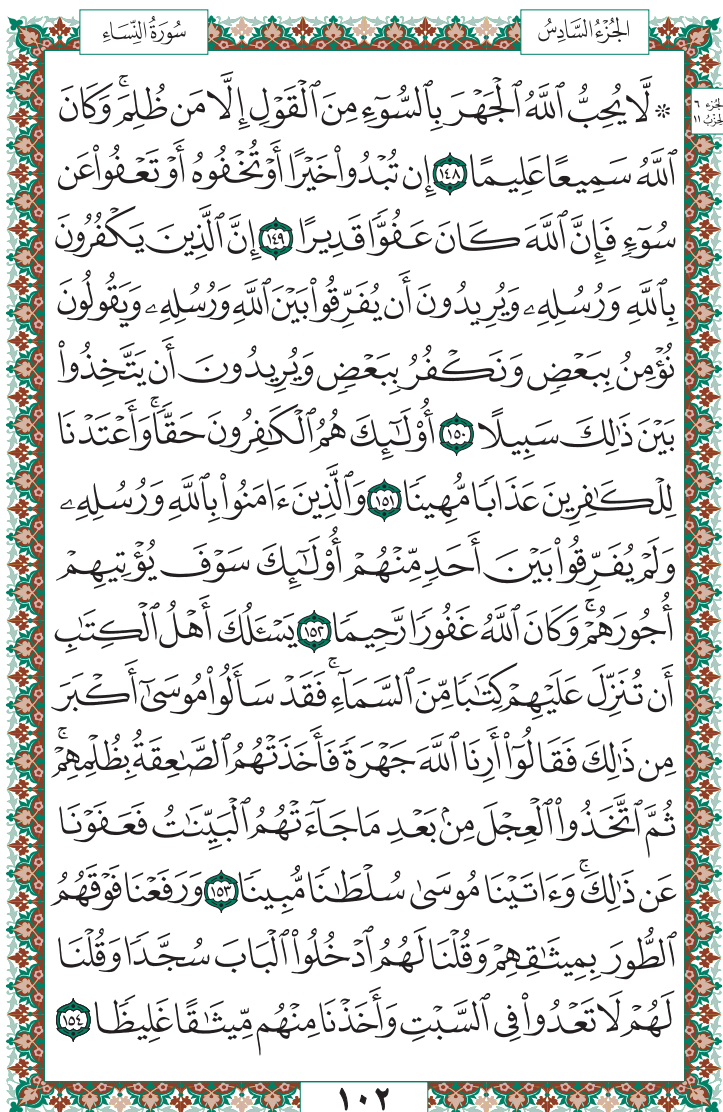 الجُزْءُ السَّادِسُ
سُورَةُ النِّسَاءِ
الجزء ٦
الحزب ١١
۞ لَّا يُحِبُّ ٱللَّهُ ٱلْجَهْرَ بِٱلسُّوٓءِ مِنَ ٱلْقَوْلِ إِلَّا مَن ظُلِمَۚ وَكَانَ
ٱللَّهُ سَمِيعًا عَلِيمًا ١٤٨ إِن تُبْدُوا۟ خَيْرًا أَوْ تُخْفُوهُ أَوْ تَعْفُوا۟ عَن
سُوٓءٍ فَإِنَّ ٱللَّهَ كَانَ عَفُوًّا قَدِيرًا ١٤٩ إِنَّ ٱلَّذِينَ يَكْفُرُونَ
بِٱللَّهِ وَرُسُلِهِۦ وَيُرِيدُونَ أَن يُفَرِّقُوا۟ بَيْنَ ٱللَّهِ وَرُسُلِهِۦ وَيَقُولُونَ
نُؤْمِنُ بِبَعْضٍ وَنَكْفُرُ بِبَعْضٍ وَيُرِيدُونَ أَن يَتَّخِذُوا۟
بَيْنَ ذَٰلِكَ سَبِيلًا ١٥٠ أُو۟لَٰٓئِكَ هُمُ ٱلْكَٰفِرُونَ حَقًّاۚ وَأَعْتَدْنَا
لِلْكَٰفِرِينَ عَذَابًا مُّهِينًا ١٥١ وَٱلَّذِينَ ءَامَنُوا۟ بِٱللَّهِ وَرُسُلِهِۦ
وَلَمْ يُفَرِّقُوا۟ بَيْنَ أَحَدٍ مِّنْهُمْ أُو۟لَٰٓئِكَ سَوْفَ يُؤْتِيهِمْ
أُجُورَهُمْۚ وَكَانَ ٱللَّهُ غَفُورًا رَّحِيمًا ١٥٢ يَسْـَٔلُكَ أَهْلُ ٱلْكِتَٰبِ
أَن تُنَزِّلَ عَلَيْهِمْ كِتَٰبًا مِّنَ ٱلسَّمَآءِۚ فَقَدْ سَأَلُوا۟ مُوسَىٰٓ أَكْبَرَ
مِن ذَٰلِكَ فَقَالُوٓا۟ أَرِنَا ٱللَّهَ جَهْرَةً فَأَخَذَتْهُمُ ٱلصَّٰعِقَةُ بِظُلْمِهِمْۚ
ثُمَّ ٱتَّخَذُوا۟ ٱلْعِجْلَ مِنۢ بَعْدِ مَا جَآءَتْهُمُ ٱلْبَيِّنَٰتُ فَعَفَوْنَا
عَن ذَٰلِكَۚ وَءَاتَيْنَا مُوسَىٰ سُلْطَٰنًا مُّبِينًا ١٥٣ وَرَفَعْنَا فَوْقَهُمُ
ٱلطُّورَ بِمِيثَٰقِهِمْ وَقُلْنَا لَهُمُ ٱدْخُلُوا۟ ٱلْبَابَ سُجَّدًا وَقُلْنَا
لَهُمْ لَا تَعْدُوا۟ فِى ٱلسَّبْتِ وَأَخَذْنَا مِنْهُم مِّيثَٰقًا غَلِيظًا ١٥٤
١٠٢